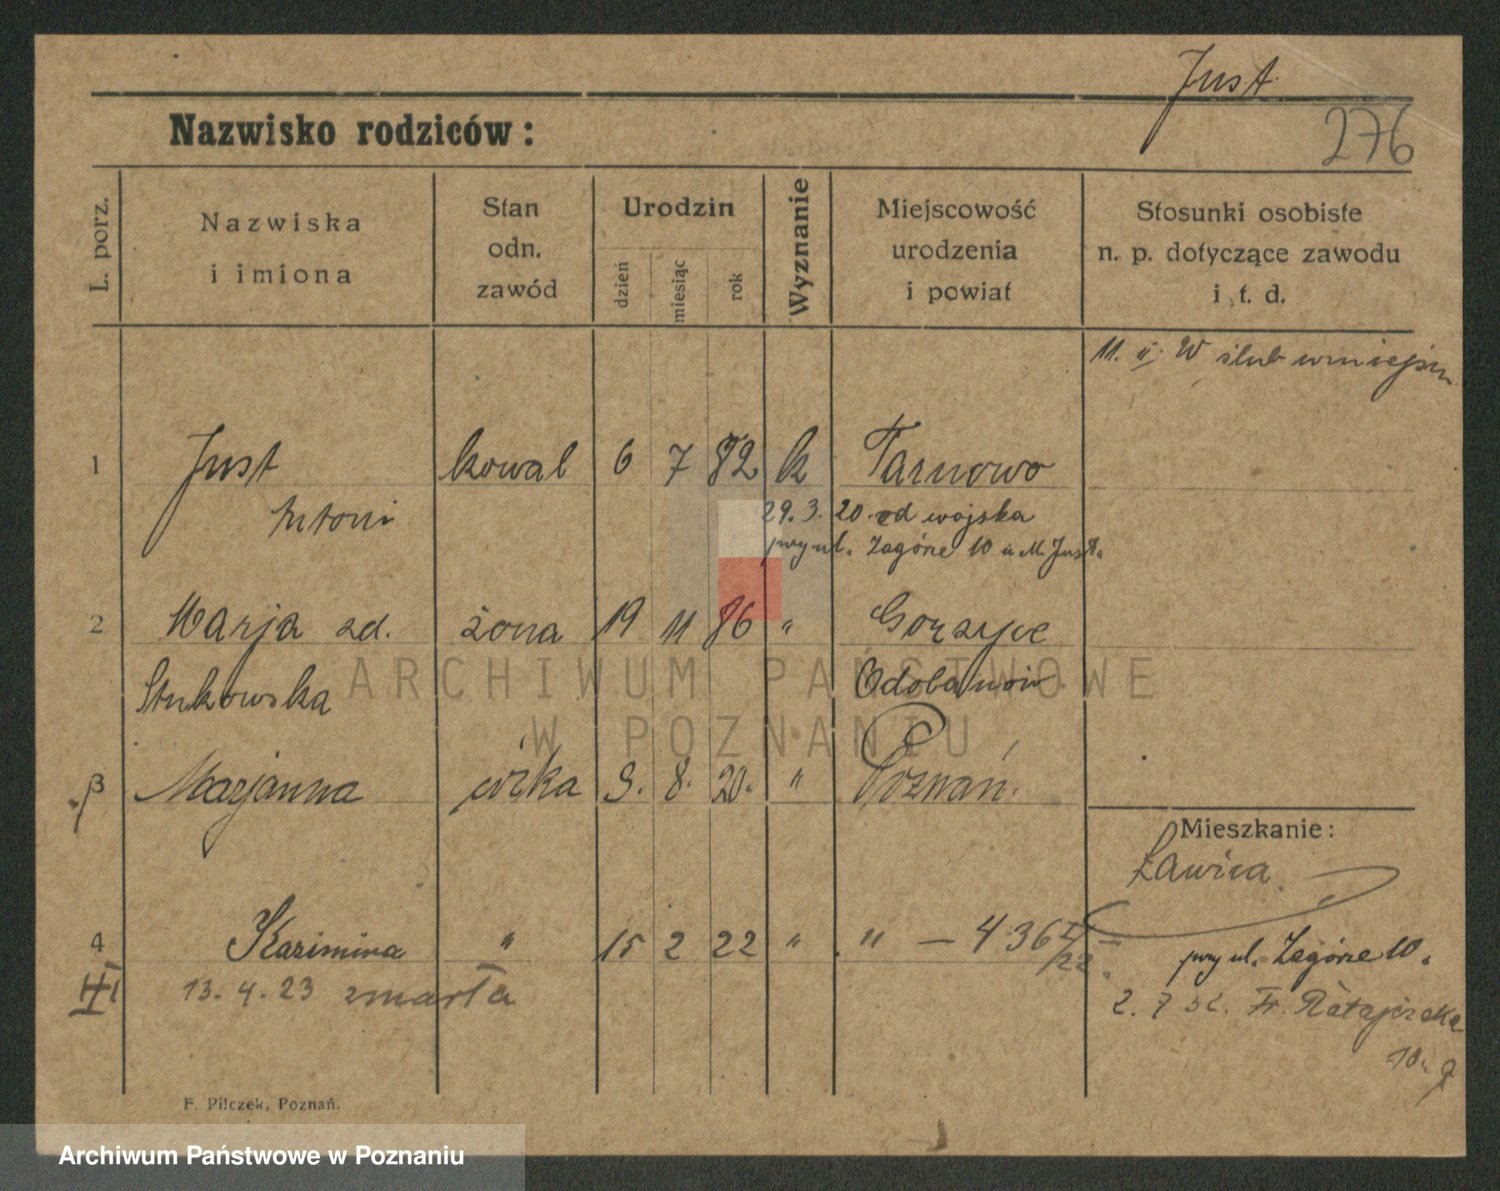 Just
Nazwisko rodziców:
276
L. porz.
Nazwiska
i imiona
Stan
odn.
zawód
Urodzin
dzień
miesiąc
rok
Wyznanie
Miejscowość
urodzenia
i powiat
Stosunki osobiste
n. p. dotyczące zawodu
i t. d.
11. II. W ślub
1 Just kowal 6 7 82 k Tarnowo
Antoni
29.3.20 od wojska
przy ul. Zagórze 10 u M. Just.
2 Marja zd. żona 19 11 86 " Gorzyce
Stukowska Odolanów
3 Marjanna córka 9. 8. 20. " Poznań.
Mieszkanie:
Ławica
4 Kazimira " 15 2 22 " " — 436
przy ul. Zagórze 10.
III 13.4.23 zmarła
2. 7 32. Fr. Ratajczaka
10
F. Pilczek, Poznań.
ARCHIWUM PAŃSTWOWE
W POZNANIU
Archiwum Państwowe w Poznaniu